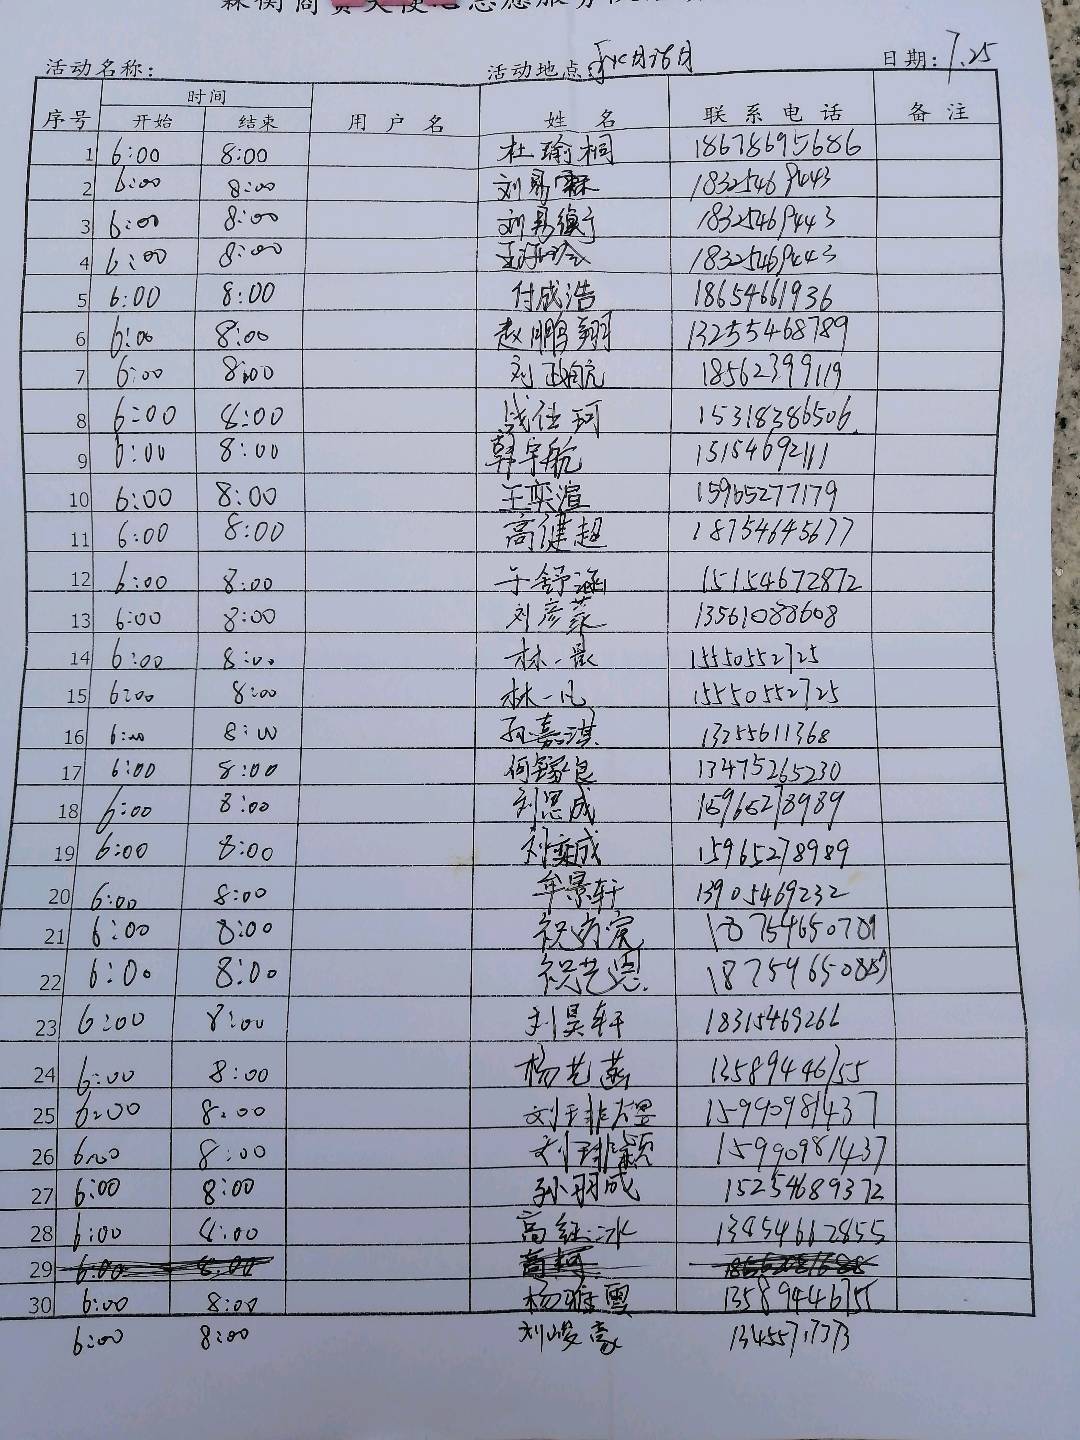 活动名称: 活动地点: 日期: 7.25
序号 时间 用 户 名 姓 名 联 系 电 话 备 注
开始 结束
1 6:00 8:00 杜瑜桐 18678695686
2 6:00 8:00 刘易霖 18325469443
3 6:00 8:00 18325469443
4 6:00 8:00 18325469443
5 6:00 8:00 付成浩 18654661936
6 6:00 8:00 赵鹏翔 13255468789
7 6:00 8:00 刘政航 18562399119
8 6:00 8:00 15318386506
9 6:00 8:00 韩宇航 15154692111
10 6:00 8:00 王奕渲 15965277179
11 6:00 8:00 高健超 18754645677
12 6:00 8:00 于舒涵 15154672872
13 6:00 8:00 刘彦蕖 13561088608
14 6:00 8:00 林一晨 15550552725
15 6:00 8:00 林一凡 15550552725
16 6:00 8:00 孙嘉淇 13255611368
17 6:00 8:00 13475265230
18 6:00 8:00 刘思成 15965278989
19 6:00 8:00 刘奕成 15965278989
20 6:00 8:00 牟景轩 13905469232
21 6:00 8:00 18754650789
22 6:00 8:00 祝艺恩
23 6:00 8:00 刘昊轩
24 6:00 8:00 杨艺菡 13589446755
25 6:00 8:00 15990981437
26 6:00 8:00 15990981437
27 6:00 8:00 孙羽成 15254689372
28 6:00 8:00 高钰冰 13954662855
29 6:00 8:00
30 6:00 8:00 杨雅雯 13589446755
6:00 8:00 刘峻豪